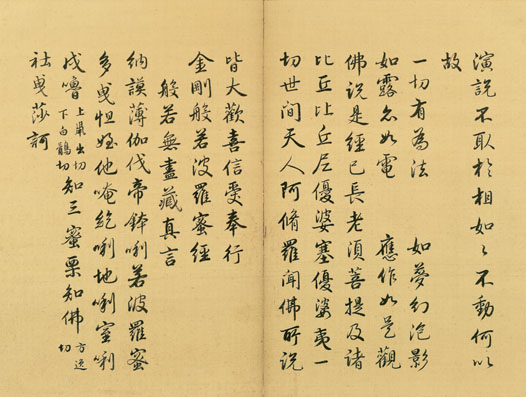 演說不取於相如〻不動何以
故
一切有為法 如夢幻泡影
如露亦如電 應作如是觀
佛說是經已長老須菩提及諸
比丘比丘尼優婆塞優婆夷一
切世間天人阿脩羅聞佛所說
皆大歡喜信受奉行
金剛般若波羅蜜經
般若無盡藏真言
納謨薄伽伐帝鉢唎若波羅蜜
多曳怛姪他唵紇唎地唎室唎
戍嚕 知三蜜栗知佛 切
社曳莎訶